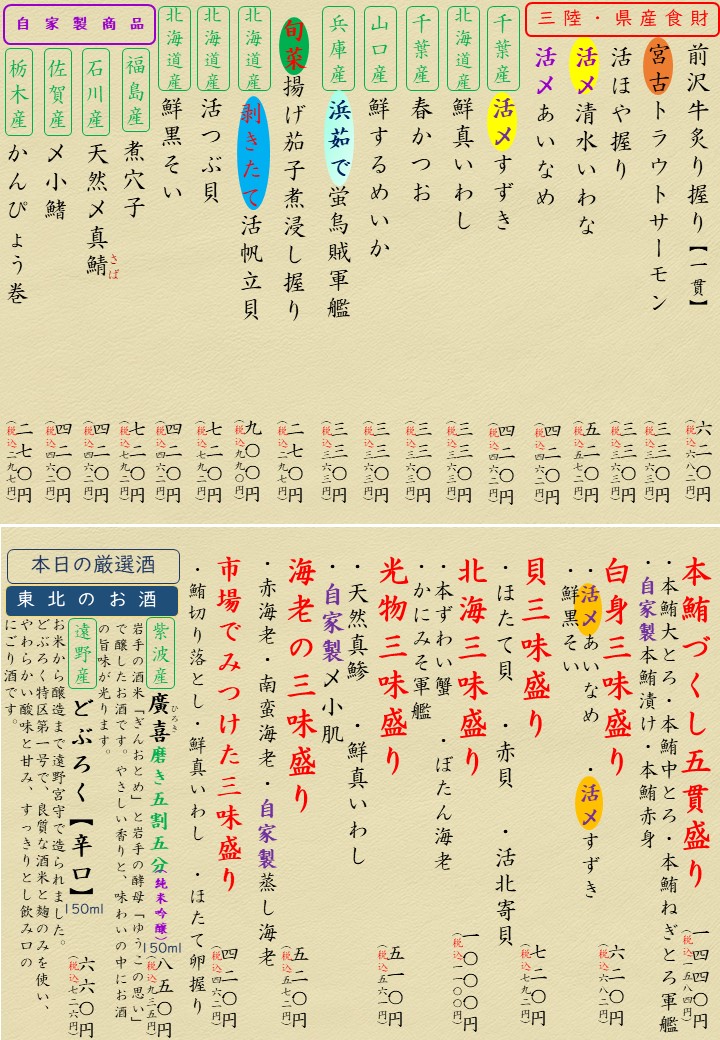 三陸・県産食財
前沢牛炙り握り【一貫】
六二〇円
(税込六八二円)
宮古トラウトサーモン
三三〇円
(税込三六三円)
活ほや握り
三三〇円
(税込三六三円)
活〆清水いわな
五二〇円
(税込五七二円)
活〆あいなめ
四二〇円
(税込四六二円)
千葉産
活〆すずき
四二〇円
(税込四六二円)
北海道産
鮮真いわし
三三〇円
(税込三六三円)
千葉産
春かつお
三三〇円
(税込三六三円)
山口産
鮮するめいか
三三〇円
(税込三六三円)
兵庫産
浜茹で蛍烏賊軍艦
三三〇円
(税込三六三円)
旬菜揚げ茄子煮浸し握り
二七〇円
(税込二九七円)
北海道産
剥きたて活帆立貝
九〇〇円
(税込九九〇円)
北海道産
活つぶ貝
七二〇円
(税込七九二円)
北海道産
鮮黒そい
四二〇円
(税込四六二円)
自家製商品
福島産
煮穴子
七二〇円
(税込七九二円)
石川産
天然〆真鯖
さば
四二〇円
(税込四六二円)
佐賀産
〆小鰭
四二〇円
(税込四六二円)
栃木産
かんぴょう巻
二七〇円
(税込二九七円)
本鮪づくし五貫盛り
一四四〇円
(税込一五八四円)
・本鮪大とろ・本鮪中とろ・本鮪ねぎとろ軍艦
・自家製本鮪漬け・本鮪赤身
白身三味盛り
六二〇円
(税込六八二円)
・活〆あいなめ ・活〆すずき
・鮮黒そい
貝三味盛り
七二〇円
(税込七九二円)
・ほたて貝 ・赤貝 ・活北寄貝
北海三味盛り
一〇〇〇円
(税込一一〇〇円)
・本ずわい蟹 ・ぼたん海老
・かにみそ軍艦
光物三味盛り
五一〇円
(税込五六一円)
・天然真鯵 ・鮮真いわし
・自家製〆小肌
海老の三味盛り
五二〇円
(税込五七二円)
・赤海老・南蛮海老・自家製蒸し海老
市場でみつけた三味盛り
四二〇円
(税込四六二円)
・鮪切り落とし・鮮真いわし ・ほたて卵握り
本日の厳選酒
東北のお酒
紫波産
廣喜磨き五割五分(純米吟醸)
ひろき
150ml
八五〇円
(税込九三五円)
岩手の酒米「ぎんおとめ」と岩手の酵母「ゆうこの思い」
で醸したお酒です。やさしい香りと、味わいの中にお酒
の旨味が光ります。
遠野産
どぶろく【辛口】
150ml
六六〇円
(税込七二六円)
お米から醸造まで遠野宮守で造られました。
どぶろく特区第一号で、良質な酒米と麹のみを使い、
やわらかい酸味と甘み、すっきりとし飲み口の
にごり酒です。